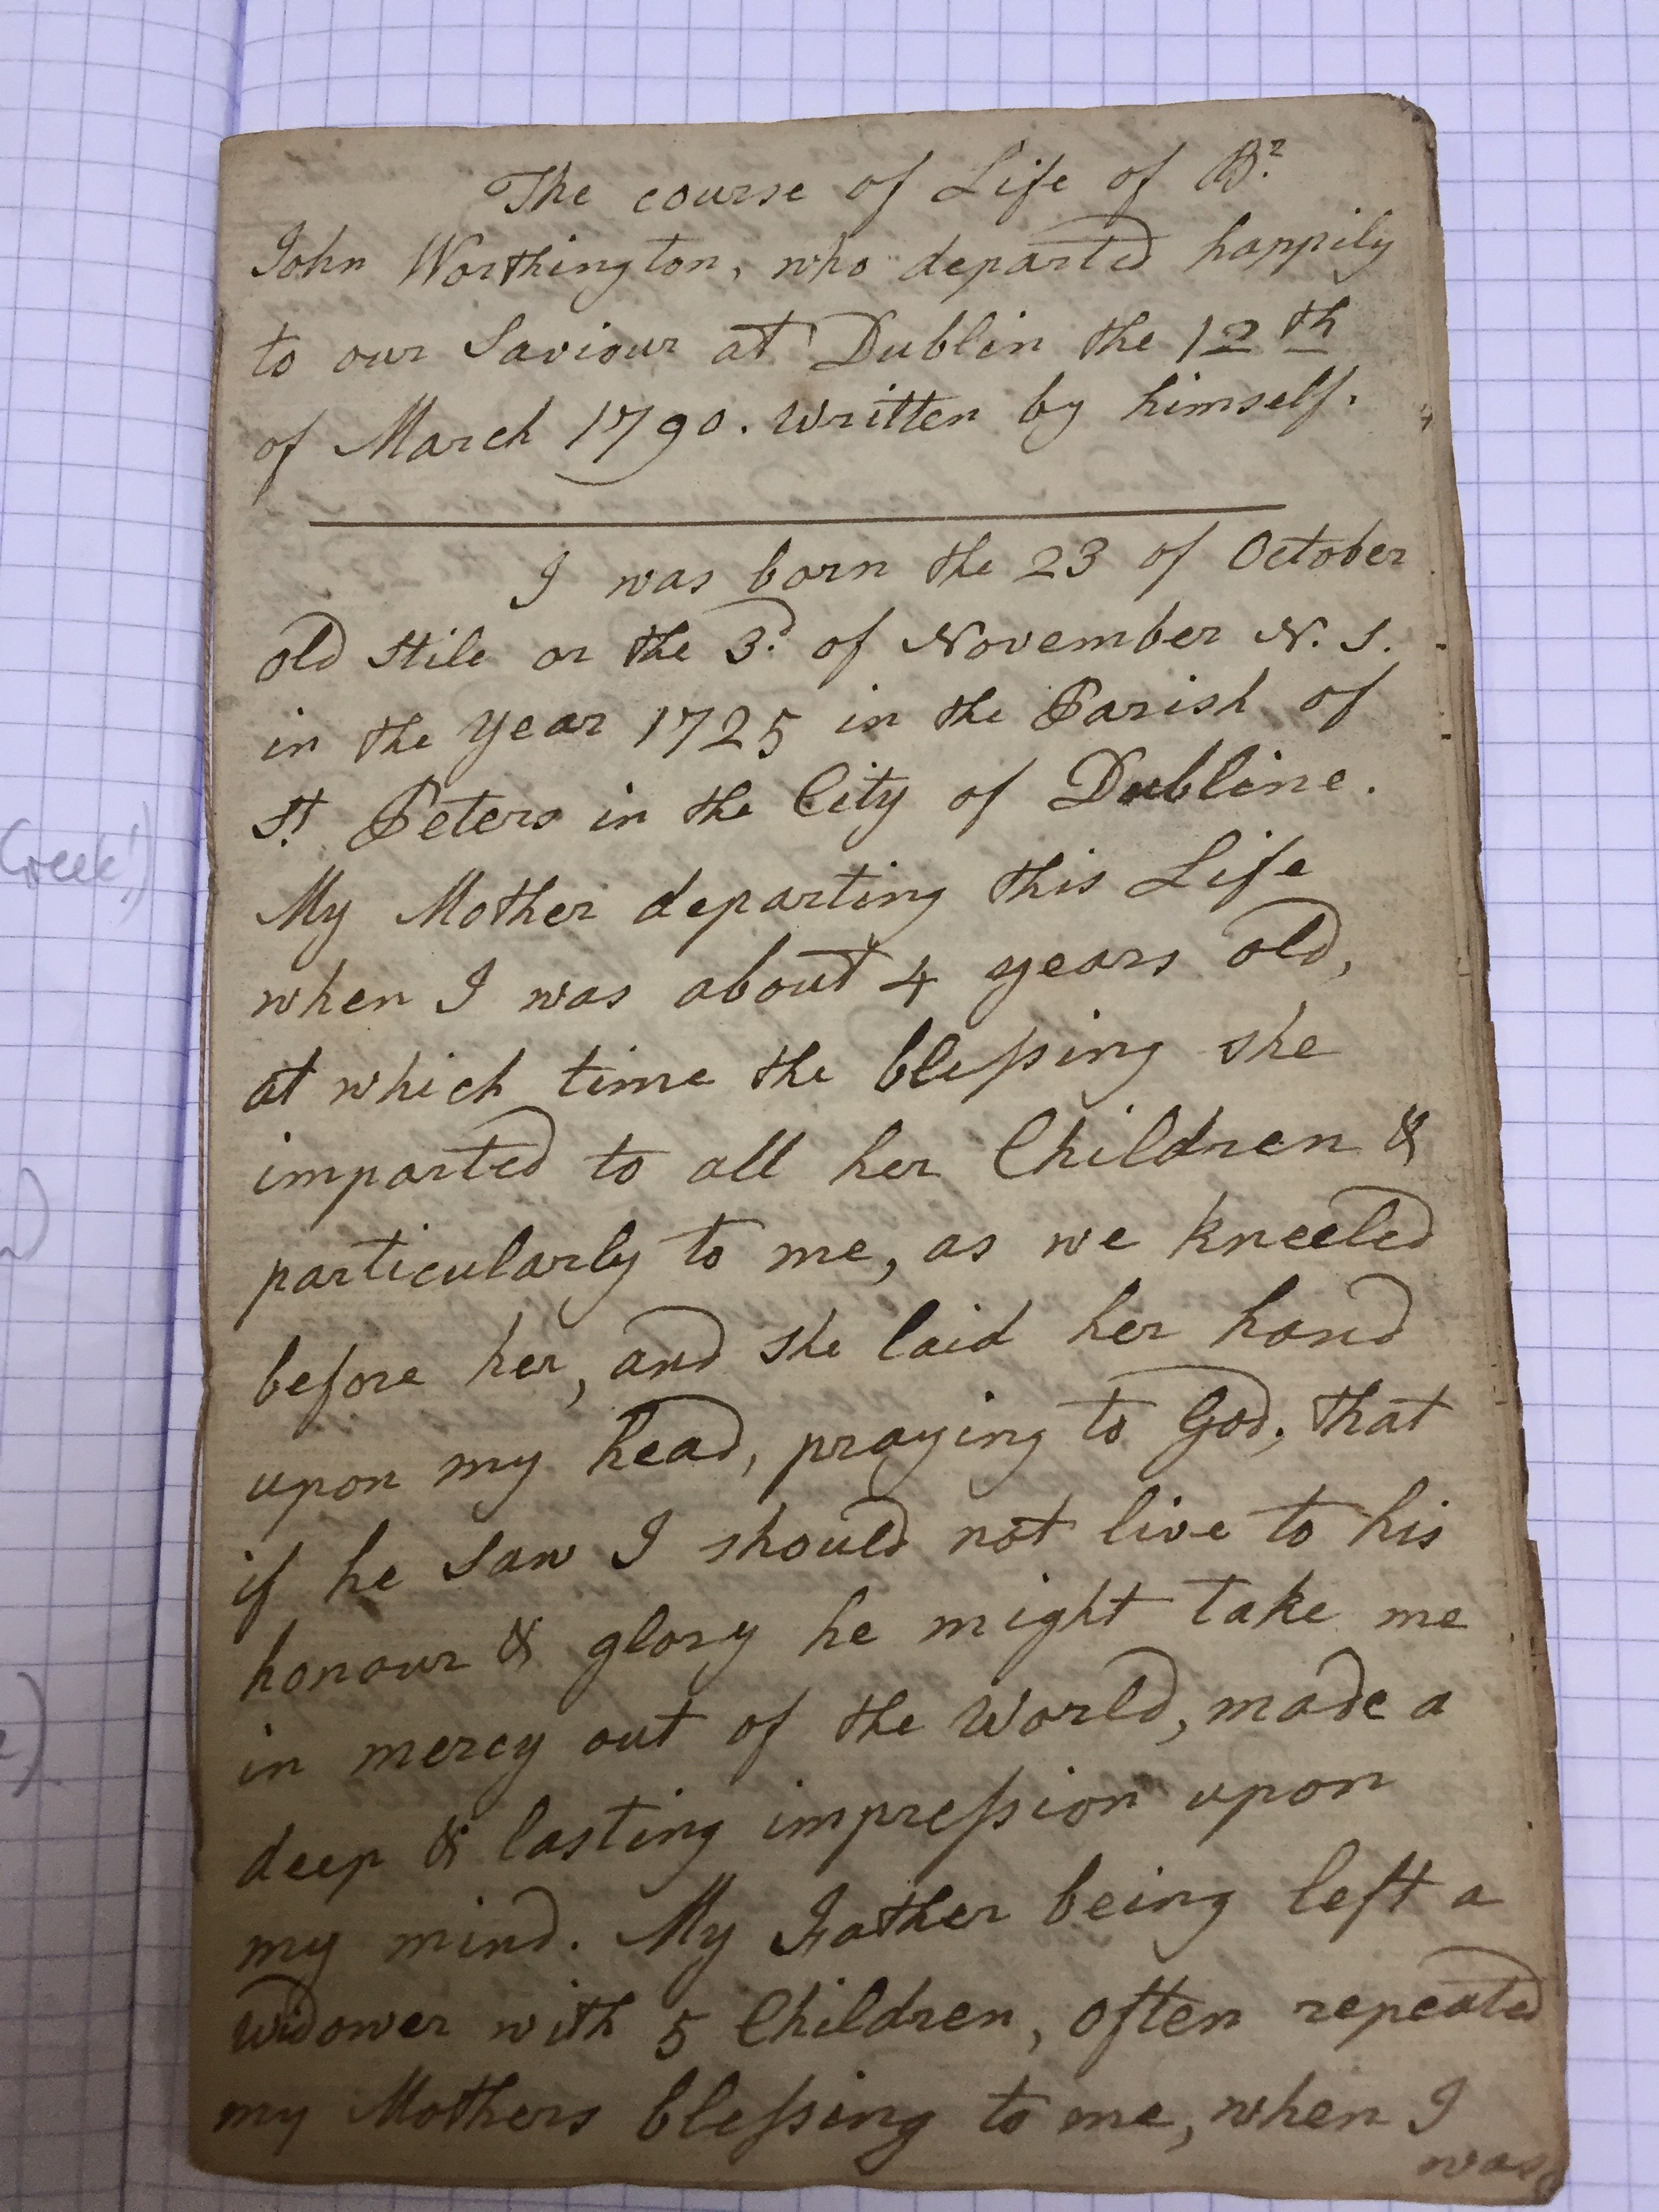 The course of Life of Br.
John Worthington, who departed happily
to our Saviour at Dublin the 12th
of March 1790. Written by himself.
I was born the 23 of October
old Stile or the 3d. of November N. S.
in the Year 1725 in the Parish of
St. Peters in the City of Dubline.
My Mother departing this Life
when I was about 4 years old,
at which time the bleſsing she
imparted to all her Children &
particularly to me, as we kneeled
before her, and she laid her hand
upon my head, praying to God, that
if he saw I should not live to his
honour & glory he might take me
in mercy out of the World, made a
deep & lasting impreſsion upon
my mind. My Father being left a
Widower with 5 Children, often repeated
my Mothers bleſsing to me, when I
was
Creek!)